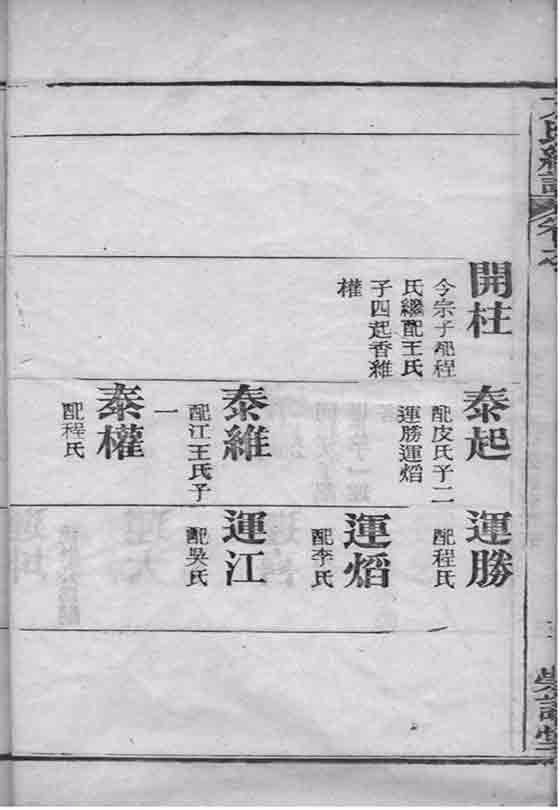 開柱
今宗子配程
氏繼配王氏
子四起香維
權
泰起
配皮氏子二
運勝運熖
泰維
配江王氏子
一
泰權
配程氏
運勝
配程氏
運熖
配李氏
運江
配吳氏